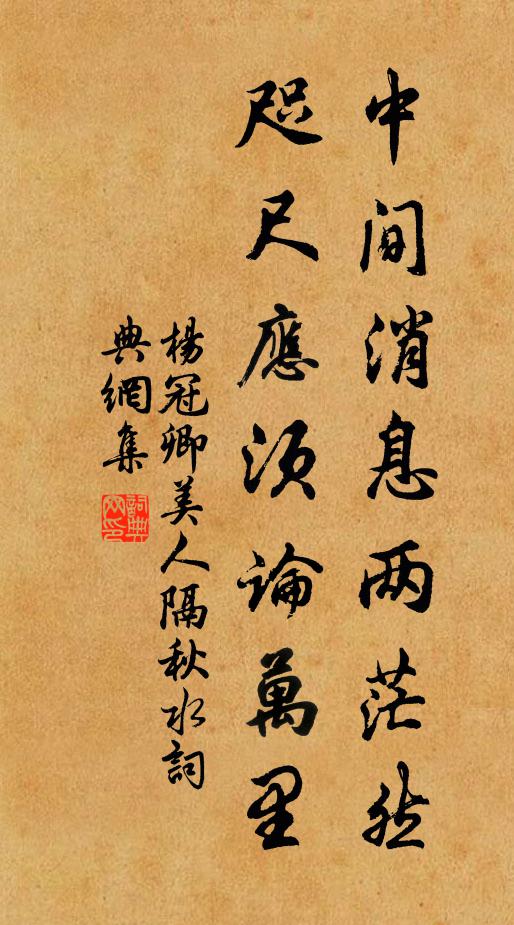 中間消息两茫然
咫尺應須論萬里
楊冠卿美人隔秋水詞
典網集
詞典網印